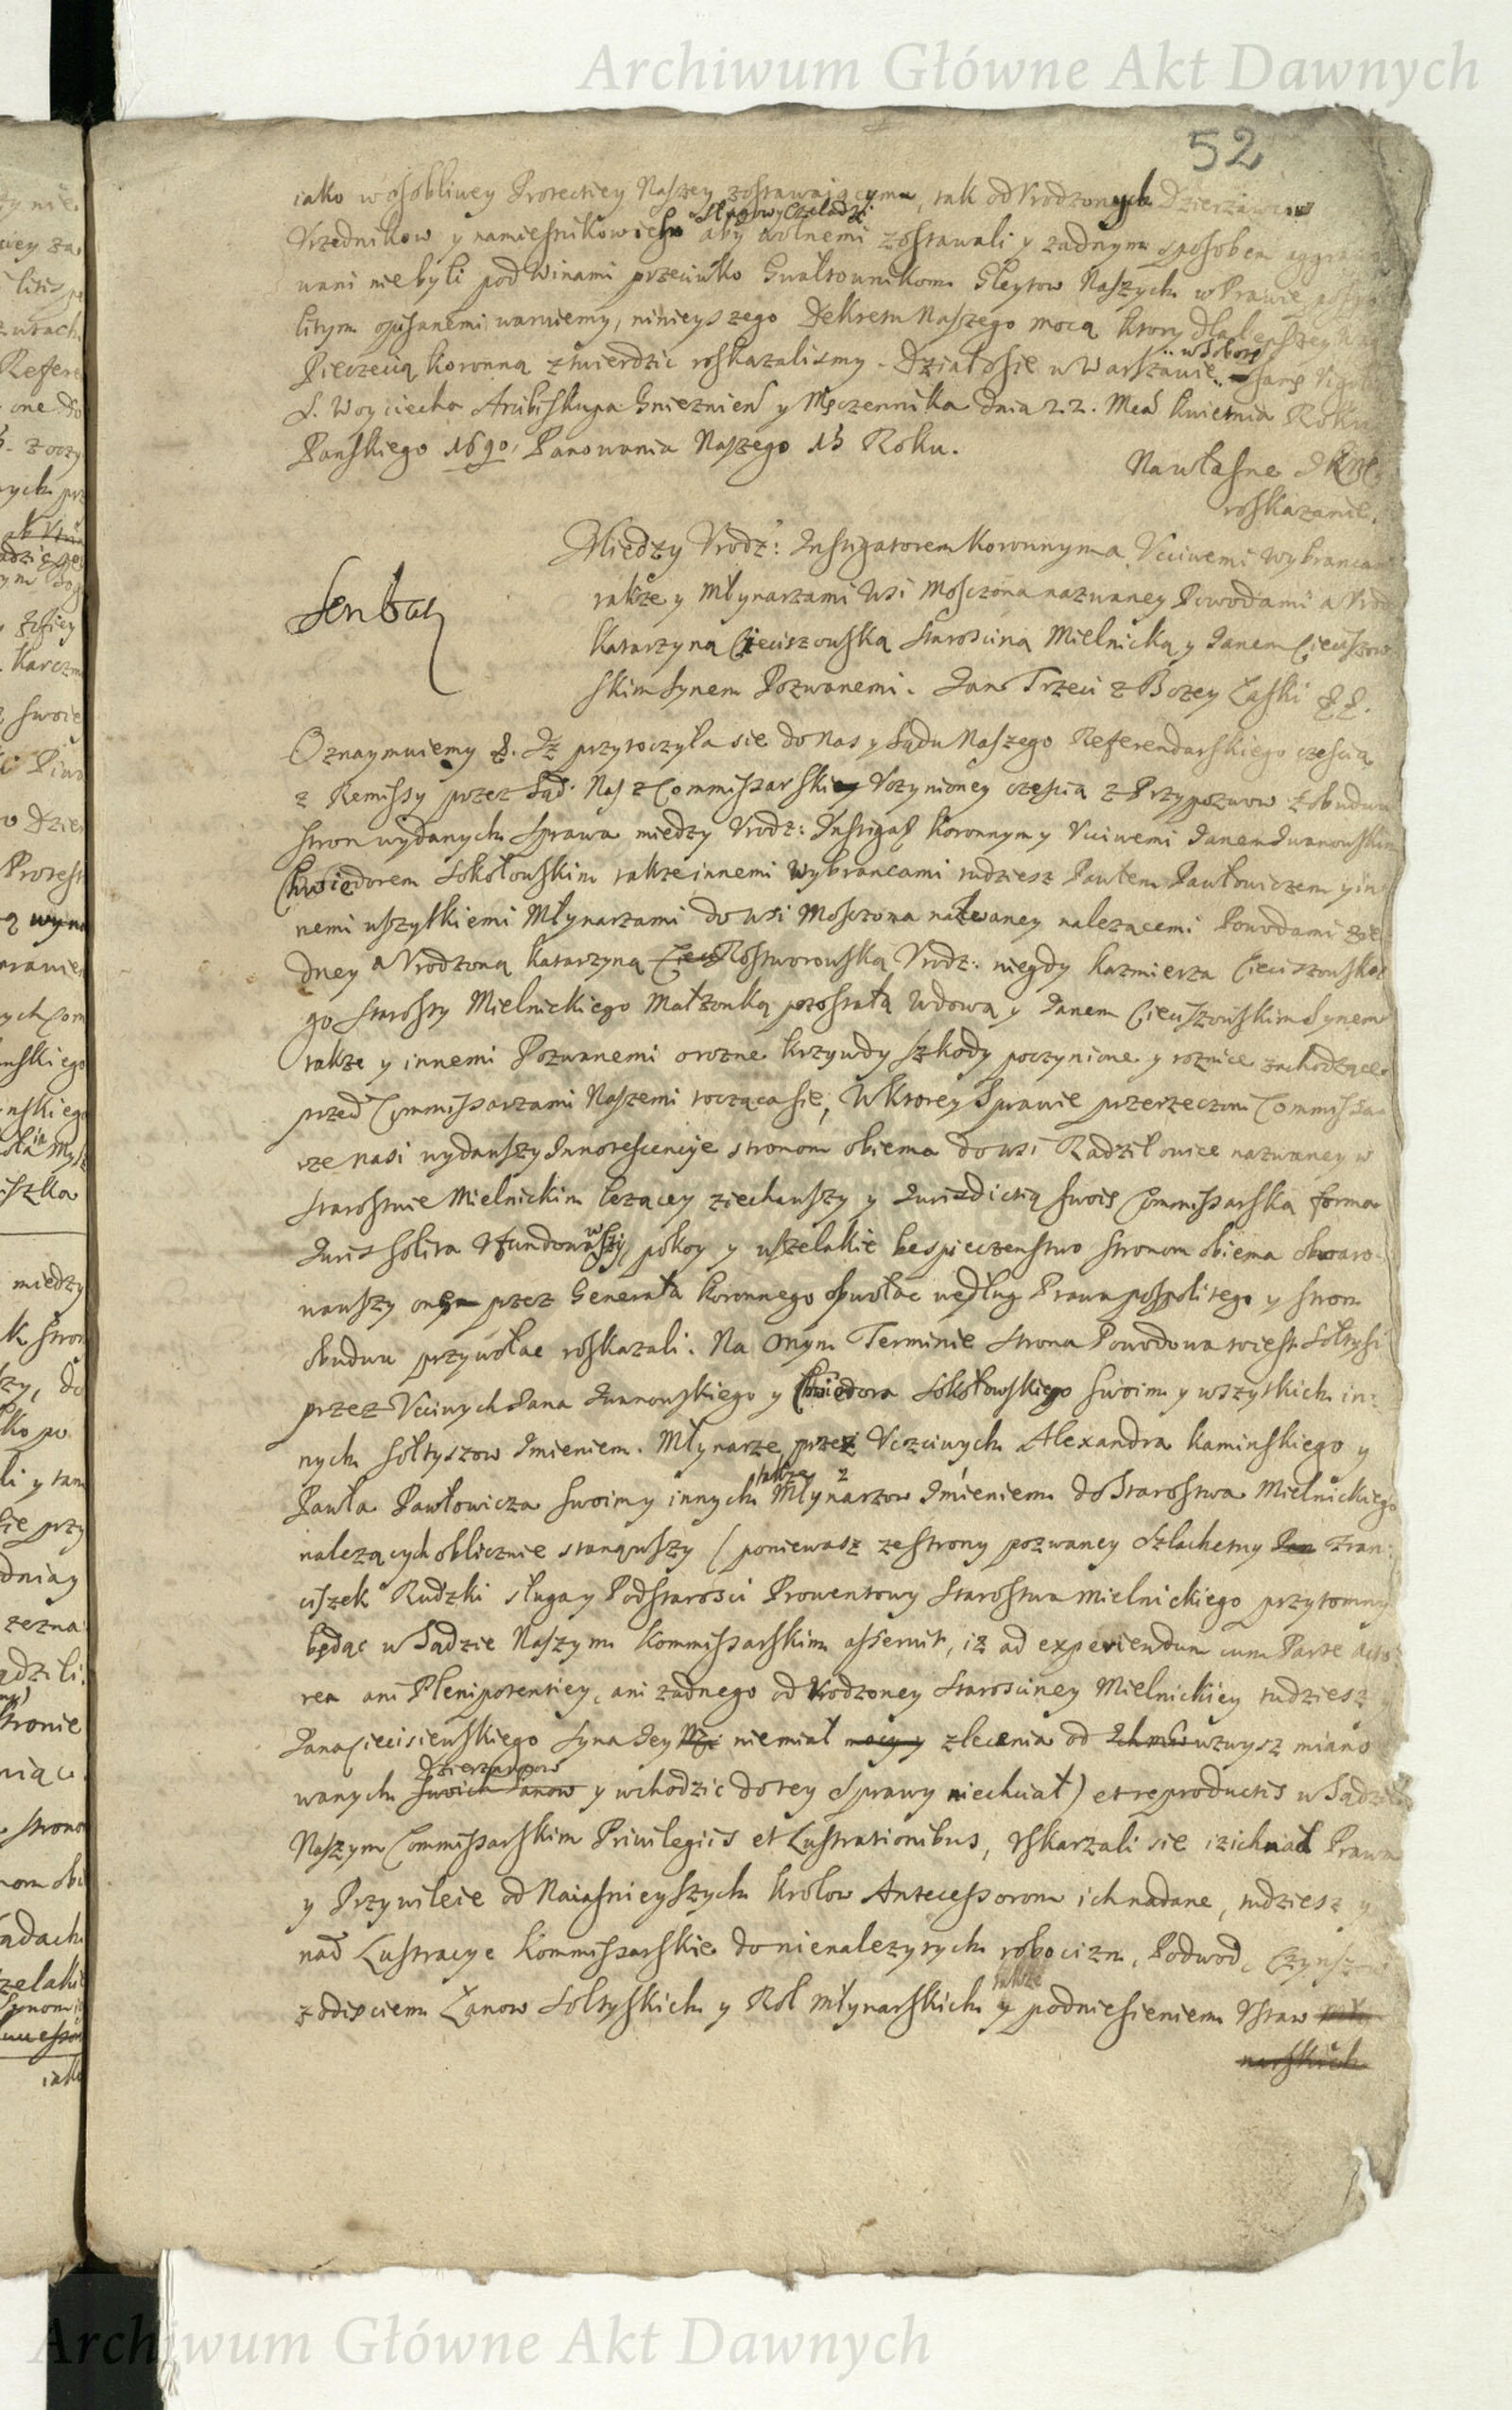 Archiwum Główne Akt Dawnych
52
iako w osobliwey Protectiey Naszey zostawaiącym, tak od Vrodzonych Dzierzawcow
Vrzednikow y namiesnikow ich Sługow y Czeladzi aby wolnemi zostawali y zadnym sposobem aggrawo
wani nie byli pod Winami przeciwko Gwałtownikom Gleytow Naszych w Prawie pospo
litym opisanemi waruiemy, ninieyszego Dekretu Naszego mocą ktory dla lepszey
Pieczęcią Koronną ztwierdzic roskazalismy. Działo sie w Warszawie w Sobotę
S. Woyciecha Arcibiskupa Gnieznień y Męczennika dnia 22. Mca Kwietnia Roku
Panskiego 1690, Panowania Naszego 15 Roku.
Na własne JKM
roskazanie.
Między Vrodz: Instigatorem Koronnym a Vcciwemi Wybrancami
także y Młynarzami Wsi Moszczona nazwaney Powodami a Vrod
Katarzyną Cieciszowską Starosciną Mielnicką y Janem Cieciszow
skim Synem Pozwanemi. Jan Trzeci z Bozey Łaski
Oznaymuiemy Iz przytoczyła sie do Nas y Sądu Naszego Referendarskiego częscią
z Remissy przez Sąd Nasz Commissarski Vczynioney częscią z Przypozwow z obudwu
stron wydanych Sprawa między Vrodz: Instigat Koronnym y Vcciwemi Janem Iwanowskim
Chwiedorem Sokołowskim także innemi Wybrancami tudziesz Pawłem Pawłowiczem y in
nemi wszytkiemi Młynarzami do wsi Moszczona nazwaney nalezącemi Powodami z ie
dney a Vrodzoną Katarzyną Rostworowską Vrodz: niegdy Kazmierza Cieciszowskie
go Starosty Mielnickiego Małzonką pozostałą Wdową y Janem Cieciszowskim Synem
takze y innemi Pozwanemi o rozne krzywdy szkody poczynione y roznice zachodzące
przed Commissarzami Naszemi tocząca sie, W ktorey Sprawie przerzeczoni Commissa
rze nasi wydawszy Innotescencye stronom obiema do wsi Radziłowice nazwaney w
Starostwie Mielnickim lezącey ziechawszy y Jurisdictią swoię Commissarską forma
Juris solita Vfundowawszy pokoy y wszelakie bespieczenstwo stronom obiema obwaro
wawszy onę przez Generała Koronnego obwołac według Prawa pospolitego y stron
obudwu przywołac roskazali. Na onym Terminie Strona Powodowa to iest Sołtysi
przez Vcciwych Jana Iwanowskiego y Chwiedora Sokołowskiego swoim y wszytkich in:
nych Sołtyszow Imieniem. Młynarze przez Vczciwych Alexandra Kaminskiego y
Pawła Pawłowicza swoim y innych także Młynarzow Imieniem do Starostwa Mielnickiego
nalezących oblicznie stanąwszy (poniewasz ze strony pozwaney Szlachetny Fran:
ciszek Rudzki sługa y Podstarosci Prowentowy Starostwa Mielnickiego przytomny
będąc w Sądzie Naszym Kommissarskim asseruit, iz ad experiendum cum Parte acto
rea ani Plenipotentiey, ani zadnego od Vrodzoney Starosciney Mielnickiey tudziesz
Jana Ciecisiewskiego Syna Iey niemiał mocy y zlecenia od wzwysz miano
wanych Dzierzawcow swoich Panow y wchodzic do tey Sprawy niechciał) et reproductis w Sądzie
Naszym Commissarskim Priwilegiis et Lustrationibus, Vskarzali sie iz ich nad Prawa
y Przywileie od Naiasnieyszych Krolow Antecessorom ich nadane, tudziesz y
nad Lustracye Kommissarskie do nienalezytych robocizn, Podwod, Czynszow
z odięciem Łanow Soltyskich y Rol Młynarskich także y podniesieniem Vstaw
narskich
Archiwum Główne Akt Dawnych